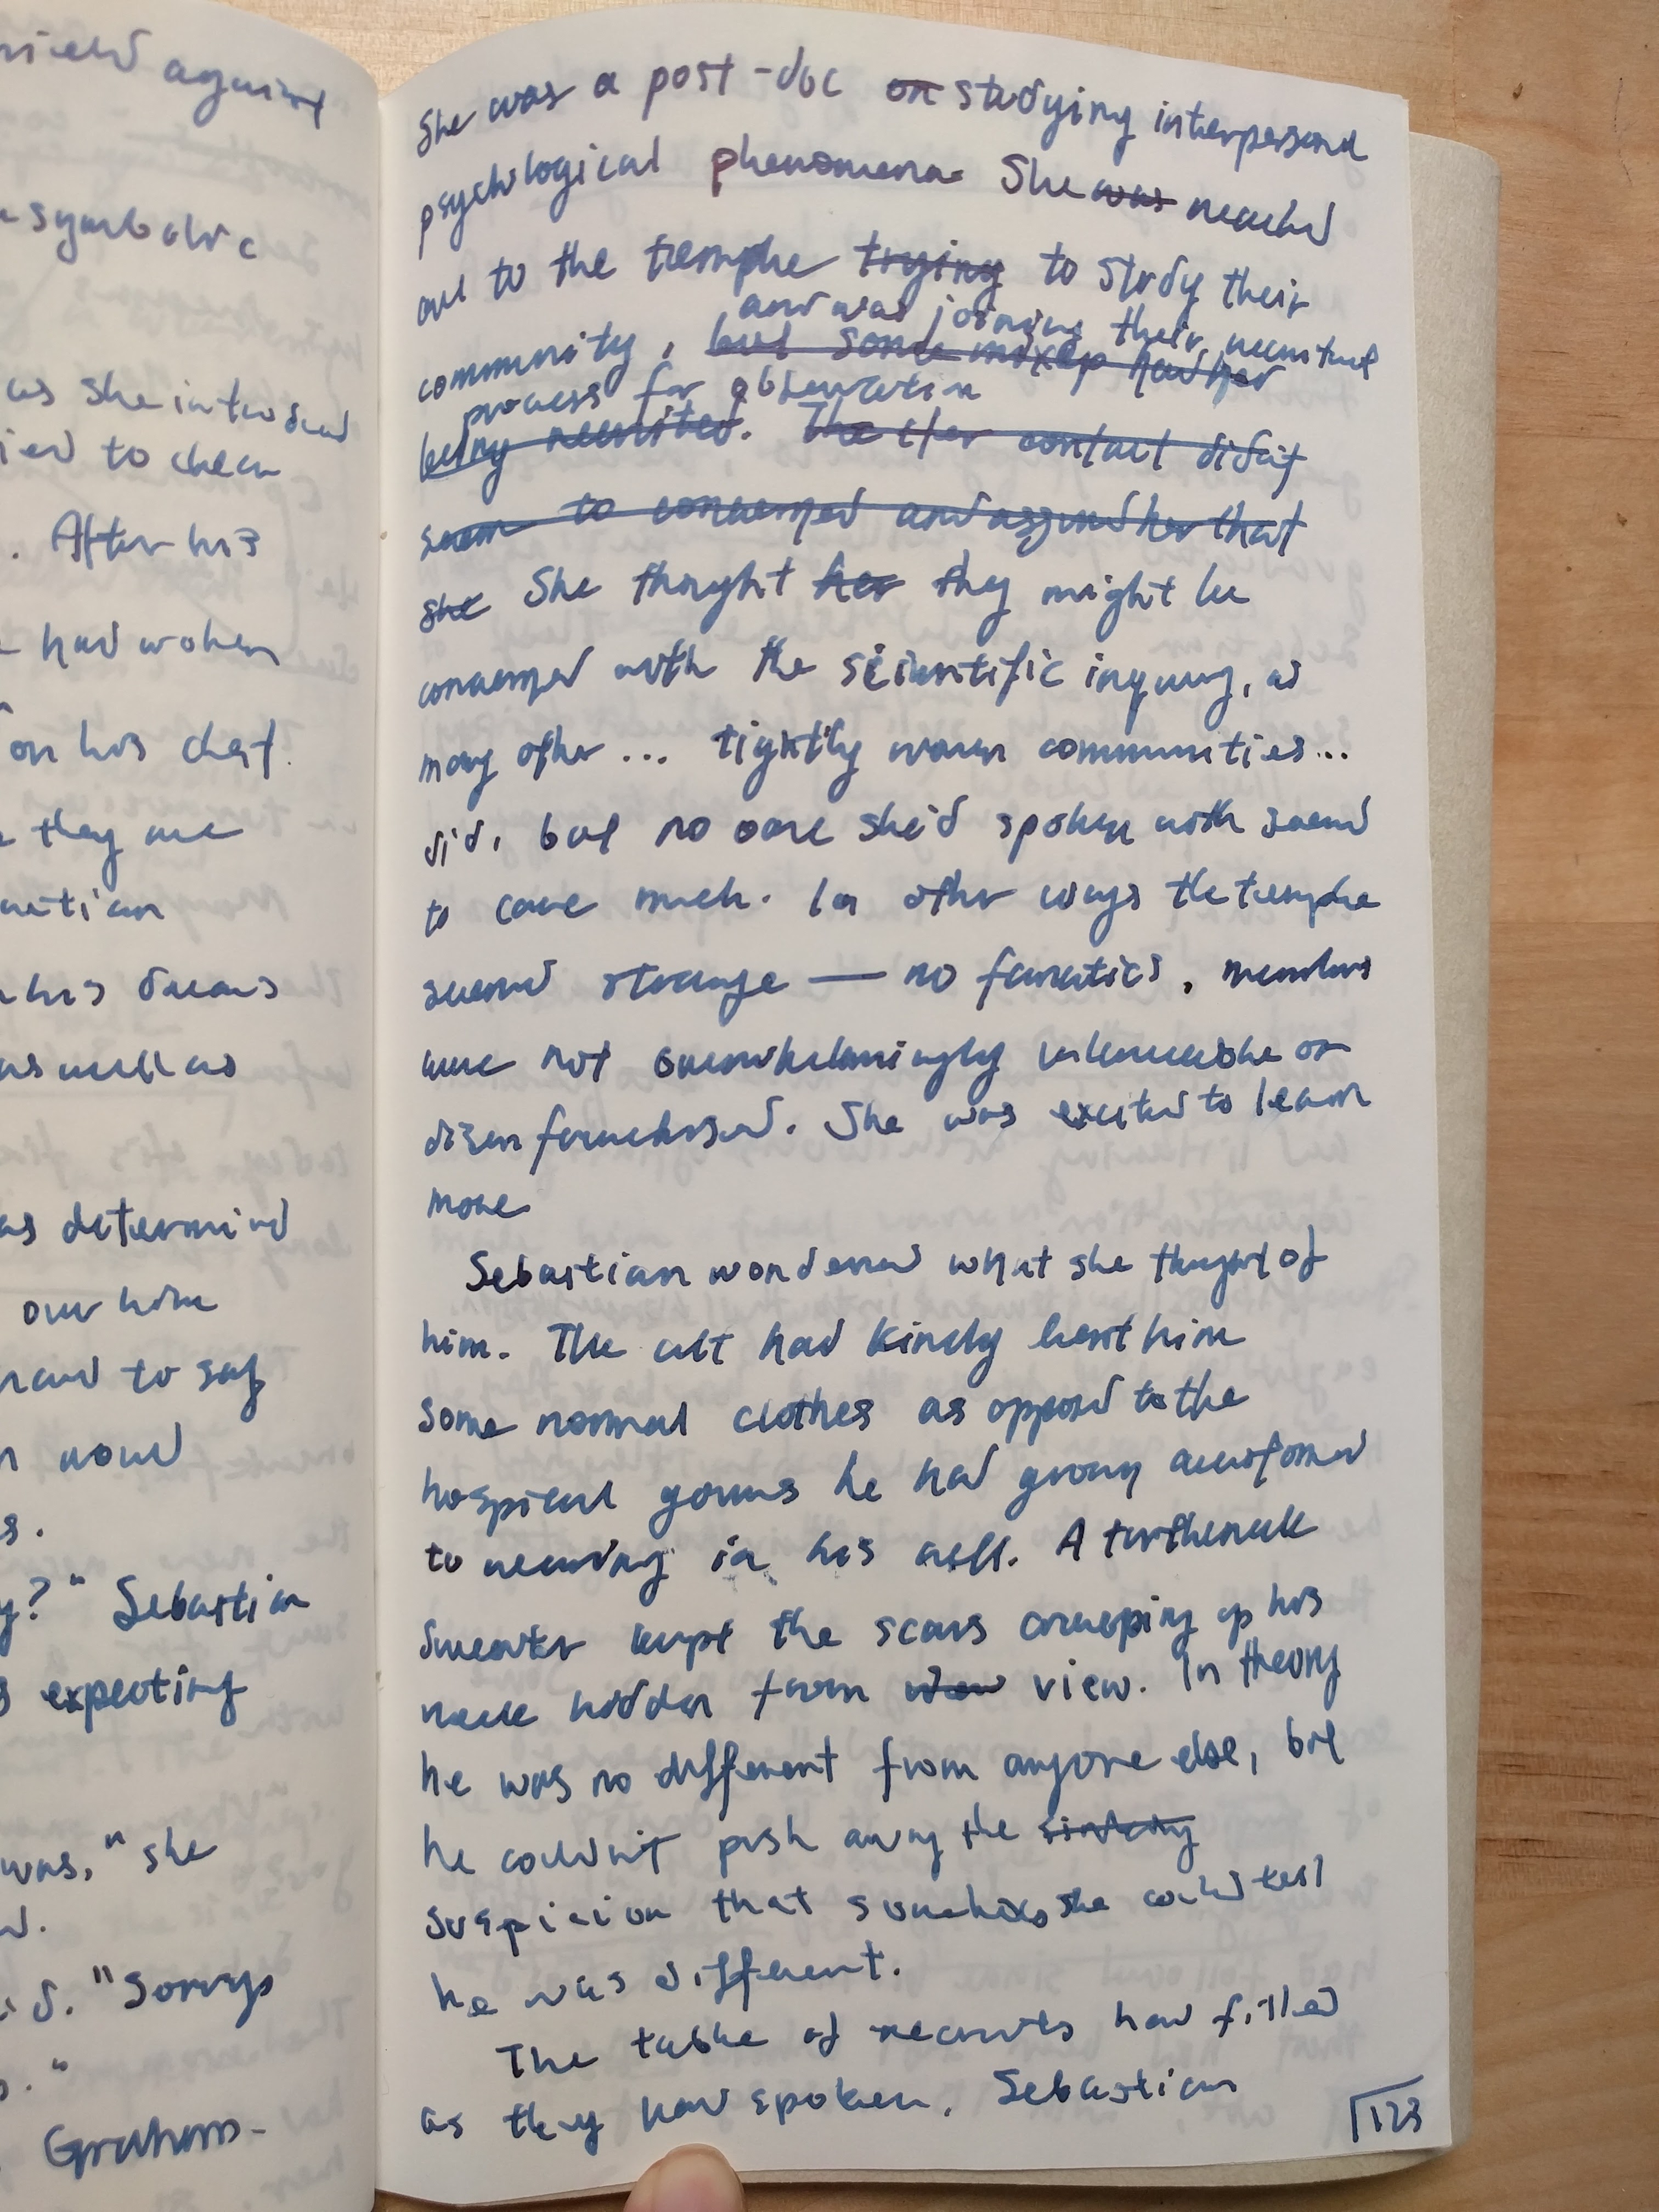 nield against
symbolic
as she introduced
ied to check
. After his
had woken
on his chest.
they are
his dreams
as well as
as determined
over him
to say
s.
y?" Sebastian
s expecting
was," she
d. "Sorry,
."
Graham-
She was a post-doc on studying interpersonal
psychological phenomena. She was reached
out to the temple trying to study their
and was joining their recruitment
community, but some mixup had her
process for observation
being recruited. The other contact didn't
seem to concerned and assured her that
she She thought her they might be
concerned with the scientific inquiry, as
many other ... tightly woven communities...
did, but no one she'd spoken with seemed
to care much. In other ways the temple
seemed strange — no fanatics, members
were not overwhelmingly vulnerable or
disenfranchised. She was excited to learn
more
Sebastian wondered what she thought of
him. The cult had kindly lent him
some normal clothes as opposed to the
hospital gowns he had grown accustomed
to wearing in his cell. A turtleneck
sweater kept the scars creeping up his
neck hidden from view view. In theory
he was no different from anyone else, but
he couldn't push away the sinking
suspicion that somehow she could tell
he was different.
The table of recruits had filled
as they had spoken. Sebastian
123